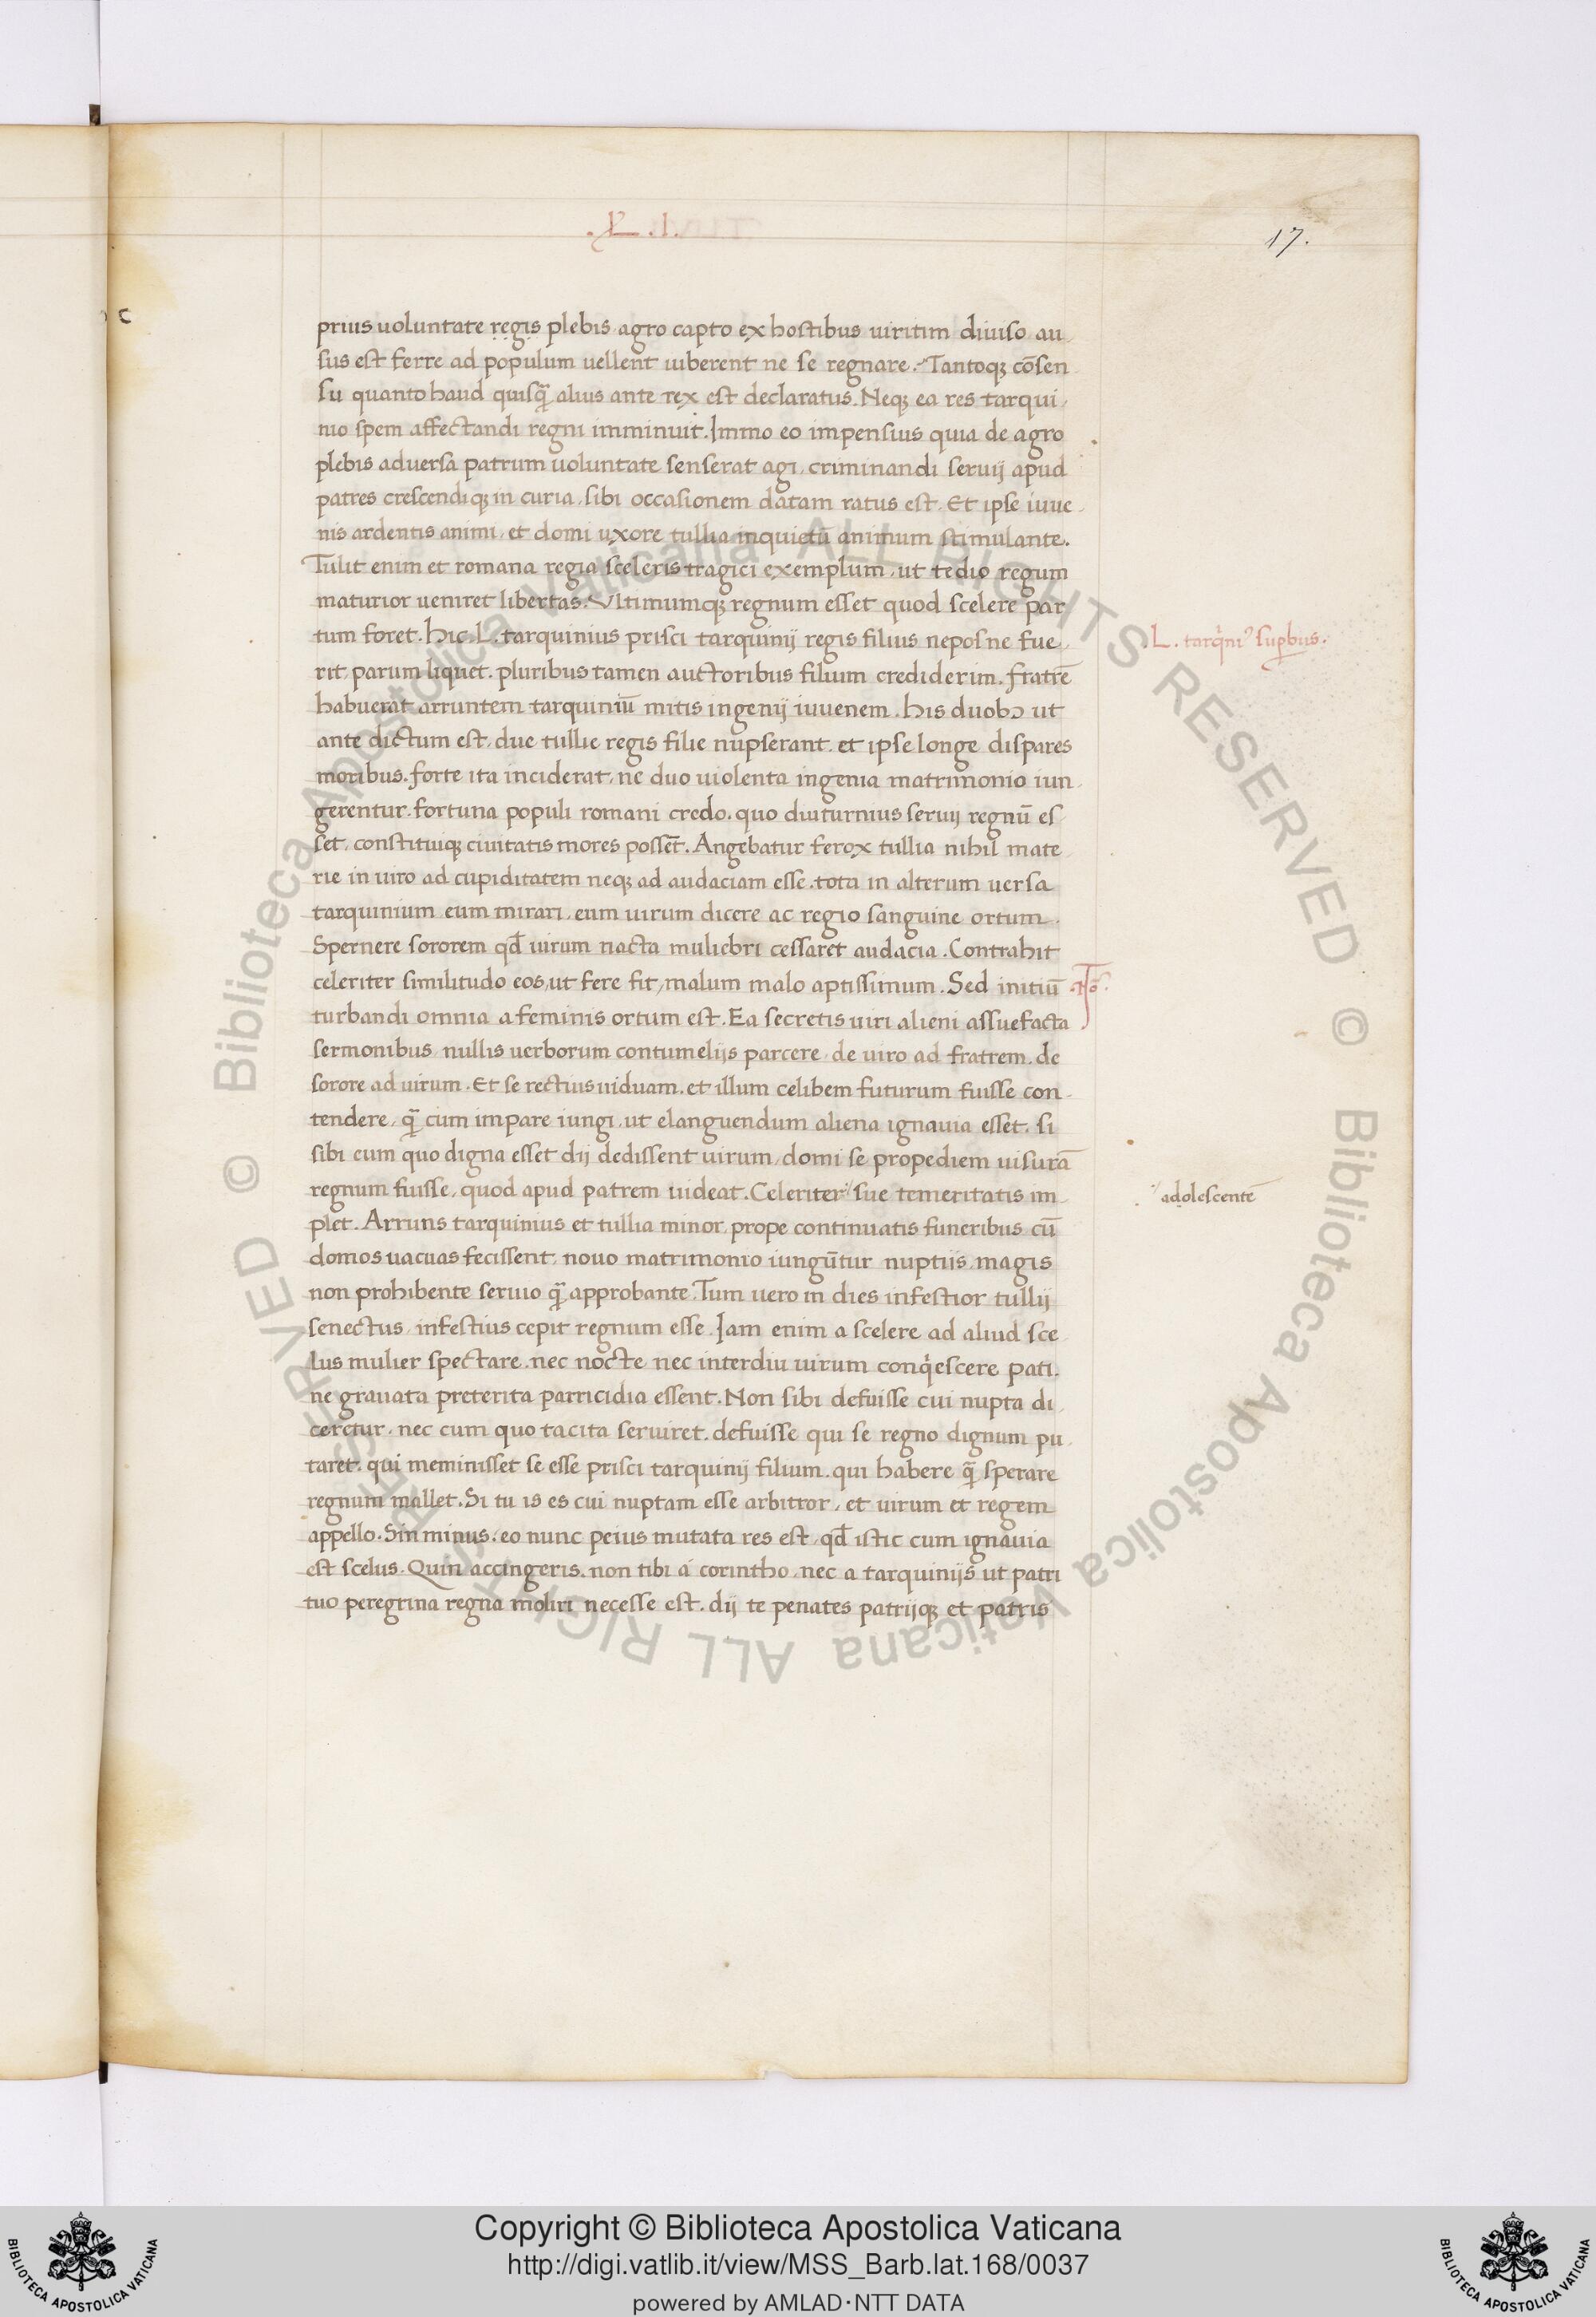 .L. .I.
17.
prius uoluntate regis plebis agro capto ex hostibus uiritim diuiso au
sus est ferre ad populum uellent iuberent ne se regnare. Tantoqꝫ cōsen
su quanto haud quisq̄ alius ante rex est declaratus. Neqꝫ ea res tarqui
nio spem affectandi regni imminuit. Immo eo impensius quia de agro
plebis aduersa patrum uoluntate senserat agi, criminandi seruij apud
patres crescendiqꝫ in curia, sibi occasionem datam ratus est. Et ipse iuue
nis ardentis animi, et domi uxore tullia inquietū animum stimulante.
Tulit enim et romana regia sceleris tragici exemplum, ut tedio regum
maturior ueniret libertas. Vltimumqꝫ regnum esset quod scelere par
tum foret. hic .L. tarquinius prisci tarquinij regis filius nepos ne fue
rit, parum liquet. pluribus tamen auctoribus filium crediderim. fratrē
.L. tarq̇niꝰ sup̱bus.
habuerat arruntem tarquiniū mitis ingenij iuuenem. his duobꝰ ut
ante dictum est, due tullie regis filie nupserant. et ipse longe dispares
moribus. forte ita inciderat, ne duo uiolenta ingenia matrimonio iun
gerentur. fortuna populi romani credo. quo diuturnius seruij regnū es
set, constituiqꝫ ciuitatis mores possēt. Angebatur ferox tullia nihil mate
rie in uiro ad cupiditatem neqꝫ ad audaciam esse. tota in alterum uersa
tarquinium eum mirari, eum uirum dicere ac regio sanguine ortum.
Spernere sororem qđ uirum nacta muliebri cessaret audacia. Contrahit
celeriter similitudo eos, ut fere fit, malum malo aptissimum. Sed initiū
turbandi omnia a feminis ortum est. Ea secretis uiri alieni assuefacta
sermonibus, nullis uerborum contumelijs parcere, de uiro ad fratrem. de
sorore ad uirum. Et se rectius uiduam. et illum celibem futurum fuisse con
tendere, q̄ cum impare iungi, ut elanguendum aliena ignauia esset. si
sibi eum quo digna esset dij dedissent uirum, domi se propediem uisurā
regnum fuisse, quod apud patrem uideat. Celeriter sue temeritatis im
adolescentē
plet. Arruns tarquinius et tullia minor, prope continuatis funeribus cū
domos uacuas fecissent, nouo matrimonio iungūtur nuptijs, magis
non prohibente seruio q̄ approbante. Tum uero in dies infestior tullij
senectus, infestius cepit regnum esse. Iam enim a scelere ad aliud sce
lus mulier spectare. nec nocte nec interdiu uirum conq̇escere pati.
ne grauata preterita parricidia essent. Non sibi defuisse cui nupta di
ceretur. nec cum quo tacita seruiret. defuisse qui se regno dignum pu
taret. qui meminisset se esse prisci tarquinij filium. qui habere q̄ sperare
regnum mallet. Si tu is es cui nuptam esse arbitror, et uirum et regem
appello. Sin minus. eo nunc peius mutata res est, qđ istic cum ignauia
est scelus. Quin accingeris. non tibi a corintho, nec a tarquinijs ut patri
tuo peregrina regna moliri necesse est. dij te penates patrijqꝫ et patris
© Biblioteca Apostolica Vaticana ALL RIGHTS RESERVED © Biblioteca Apostolica Vaticana ALL RIGHTS RESERVED
Copyright © Biblioteca Apostolica Vaticana
http://digi.vatlib.it/view/MSS_Barb.lat.168/0037
powered by AMLAD·NTT DATA
BIBLIOTECA APOSTOLICA VATICANA
BIBLIOTECA APOSTOLICA VATICANA